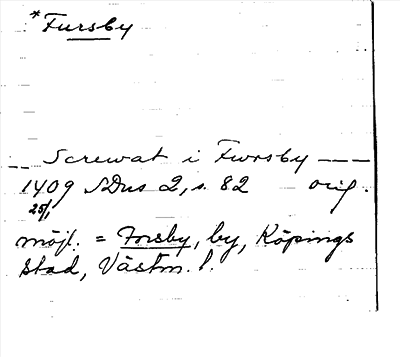 *Fursby
Screwat i Fworsby ——
1409 SDns 2, s. 82 orig.
25/1
möjl. = Forsby, by, Köpings
stad, Västm. l.